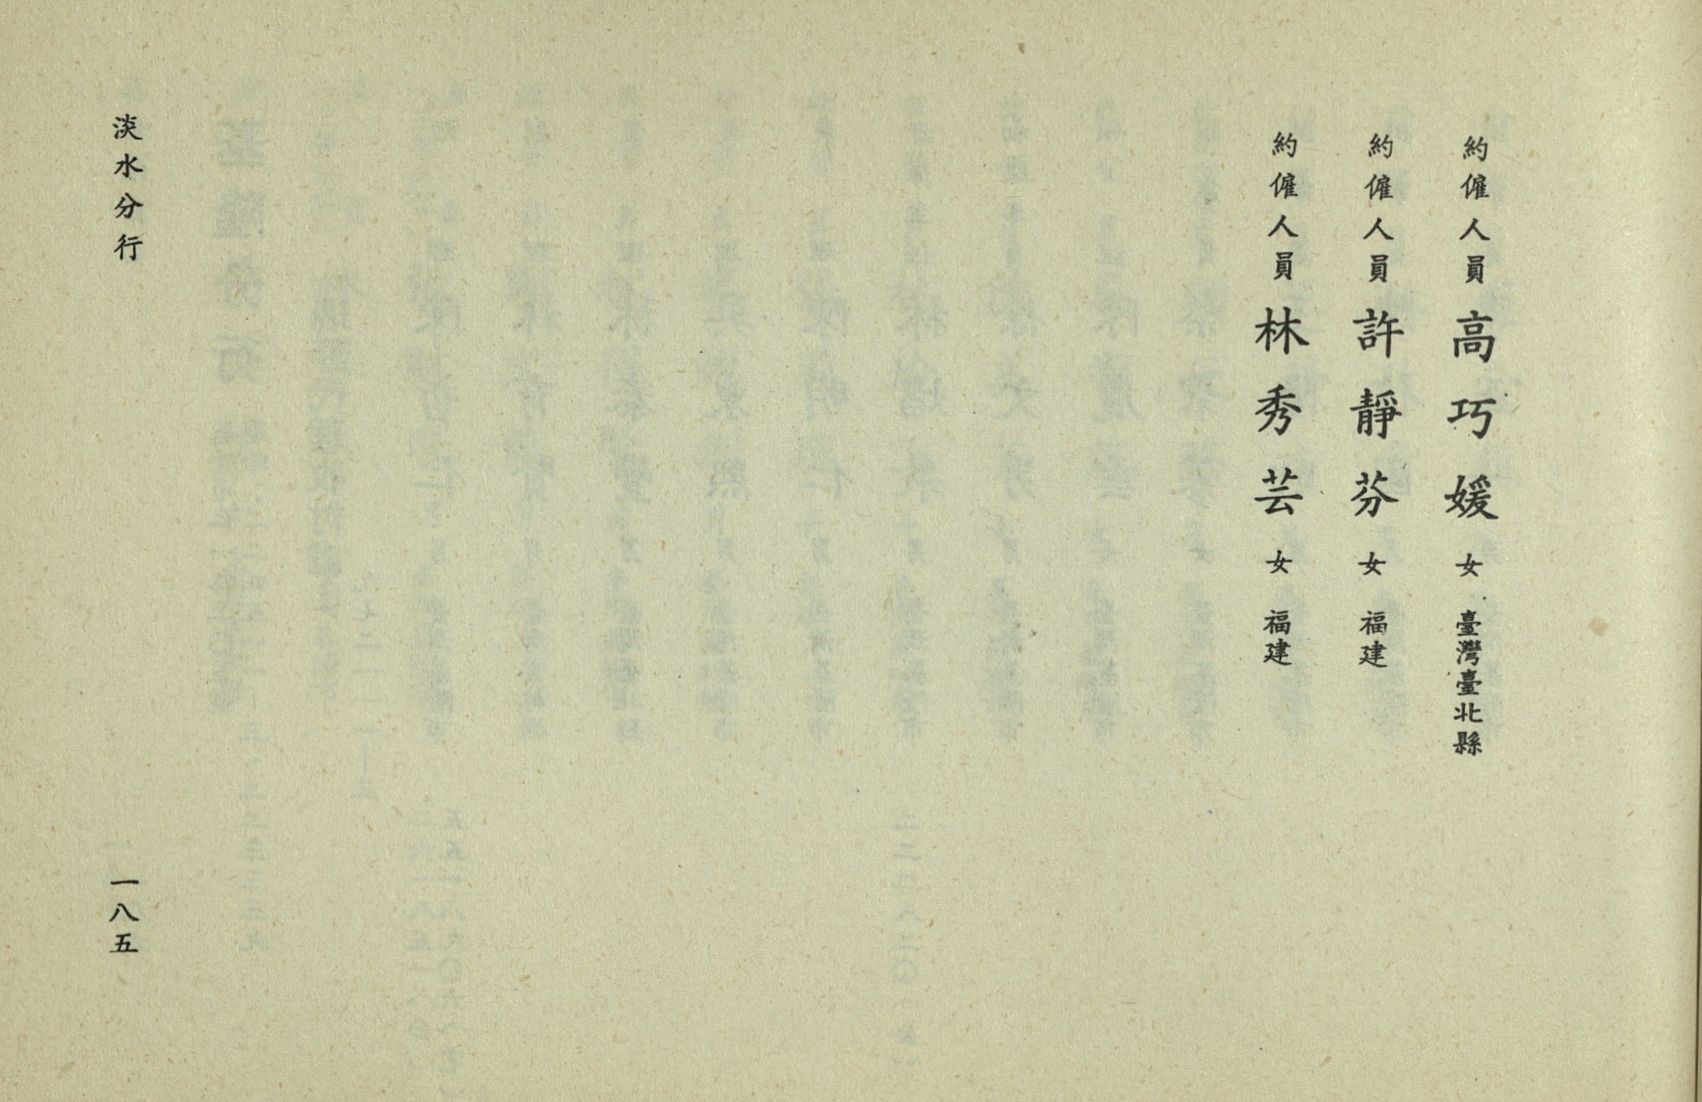 約僱人員 高巧媛 女 臺灣臺北縣
約僱人員 許靜芬 女 福建
約僱人員 林秀芸 女 福建
淡水分行 一八五